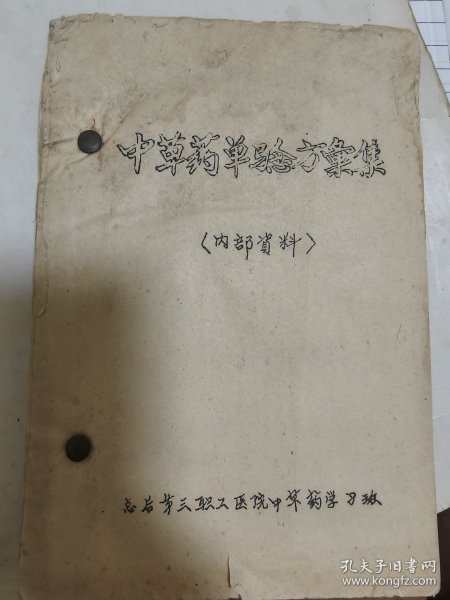 中草药单験方彙集
〈内部資料〉
总后第三职工医院中草药学习班
孔夫子旧书网
www.kongfz.com